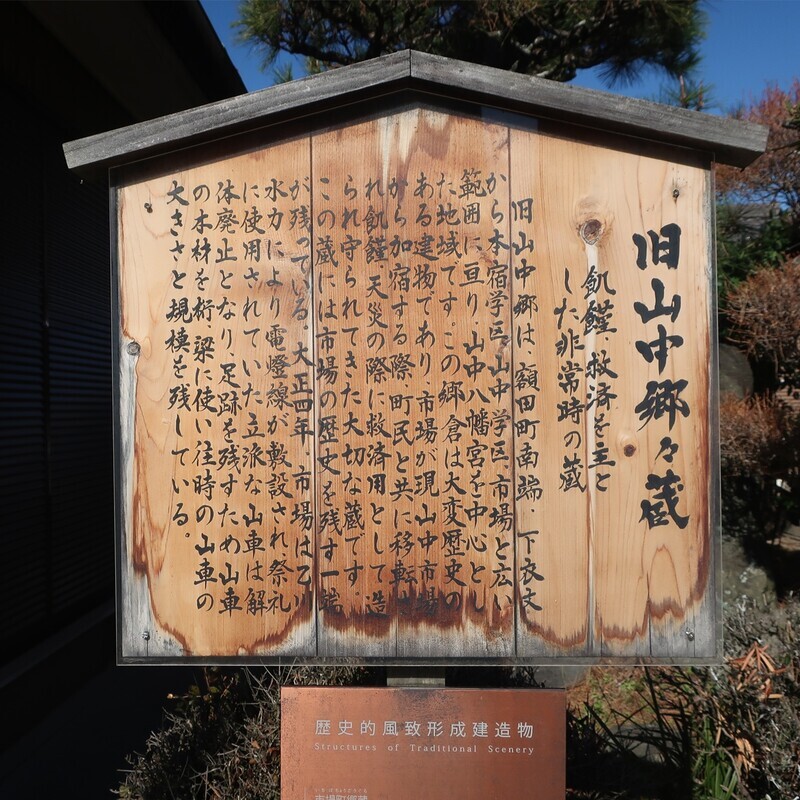 旧山中郷々蔵
飢饉、救済を主と
した非常時の蔵
旧山中郷は、額田町南端、下衣文
から本宿学区、山中学区、市場と広い
範囲に亘り、山中八幡宮を中心とし
た地域です。この郷倉は大変歴史の
ある建物であり、市場が現山中市場
から加宿する際、町民と共に移転さ
れ飢饉、天災の際に救済用として造
られ守られてきた大切な蔵です。
この蔵には市場の歴史を残す一端
が残っている。大正四年、市場は乙川
水力により電燈線が敷設され、祭礼
に使用されていた立派な山車は解
体廃止となり、足跡を残すため山車
の木材を桁、梁に使い往時の山車の
大きさと規模を残している。
歴史的風致形成建造物
Structures of Traditional Scenery
市場町郷蔵